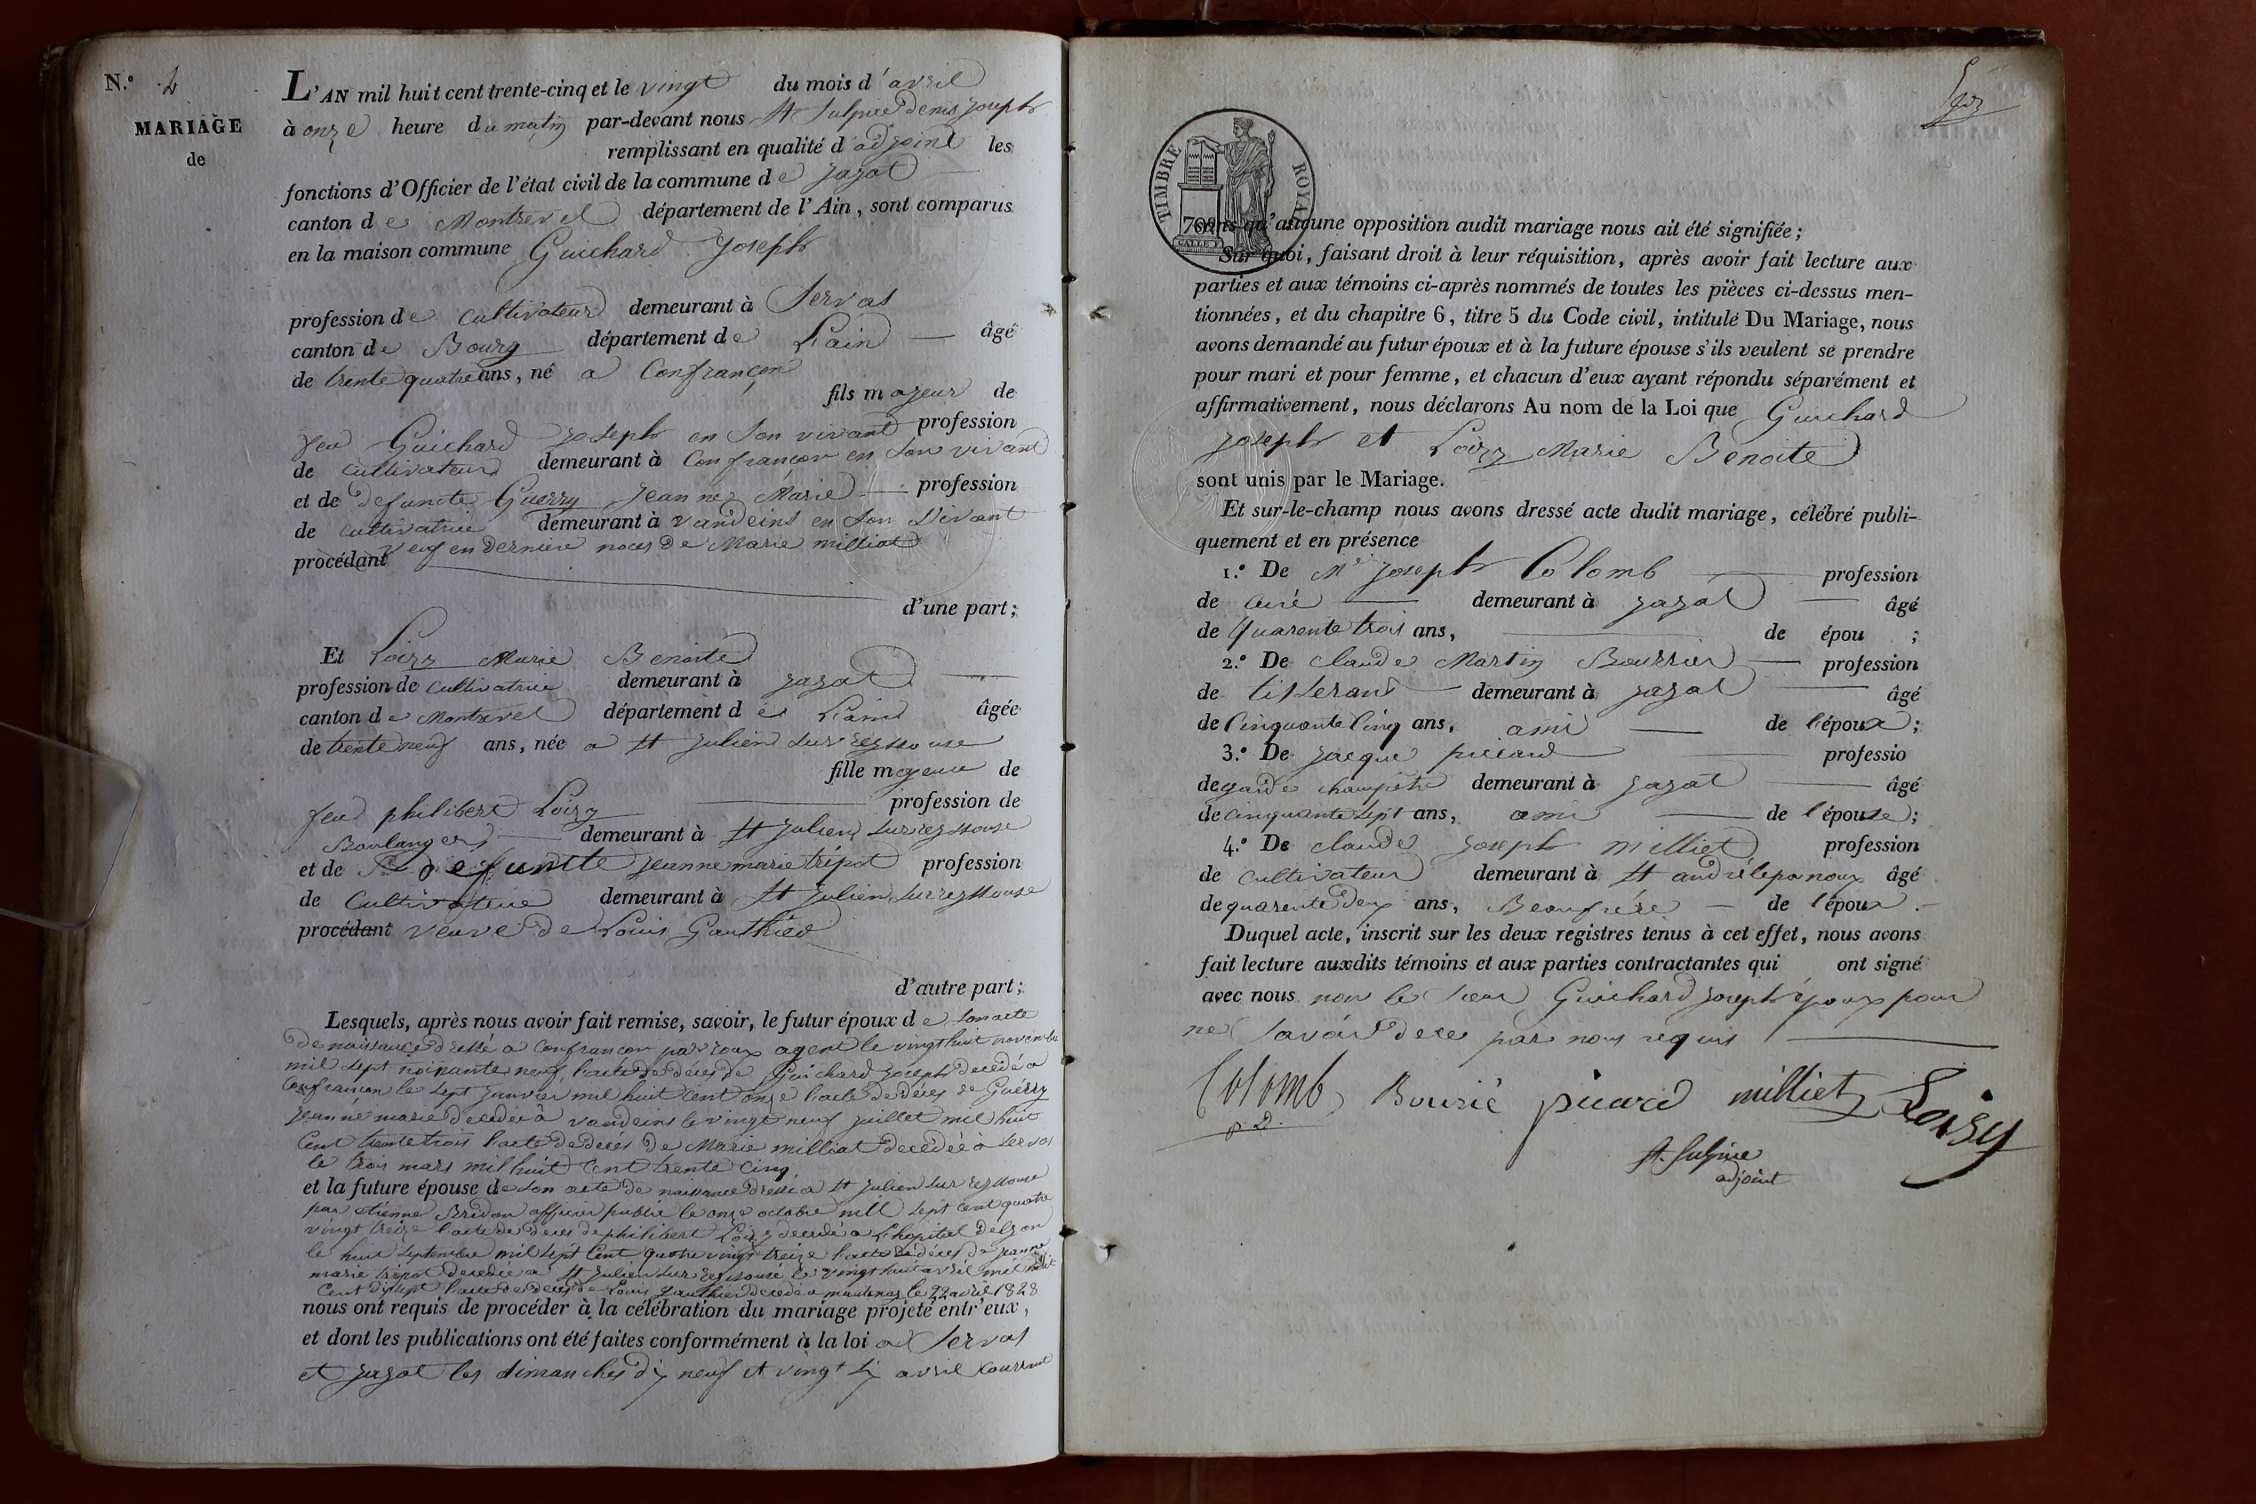 N.° 2
MARIAGE
de
L'AN mil huit cent trente-cinq et le vingt du mois d'avril
à onze heure du matin par-devant nous St Sulpice denis joseph
remplissant en qualité d'adjoint les
fonctions d'Officier de l'état civil de la commune de jayat
canton de Montrevel département de l'Ain, sont comparus
en la maison commune Guichard Joseph
profession de cultivateur demeurant à Servas
canton de Bourg département de L'ain âgé
de trente quatre ans, né a Confrançon
fils majeur de
feu Guichard joseph en son vivant profession
de cultivateur demeurant à Confrançon en son vivant
et de defuncte Guerry jeanne Marie profession
de cultivatrice demeurant à vandeins en son vivant
procédant veuf en derniere noces de Marie milliat
d'une part;
Et Loizy Marie Benoite
profession de cultivatrice demeurant à jayat
canton de Montrevel département de L'ain âgée
de trente neuf ans, née a St julien sur reyssouse
fille majeure de
feu philibert Loizy profession de
Boulanger demeurant à St julien sur reyssouse
et de defuncte jeanne marie tripoz profession
de Cultivatrice demeurant à St julien sur reyssouse
procédant veuve de Louis Gauthier
d'autre part;
Lesquels, après nous avoir fait remise, savoir, le futur époux de son acte
de naissance dressé a confrancon par roux agent le vingt huit novembre
mil sept noinante neuf, l'acte de deces de Guichard joseph decedé a
confrancon le sept janvier mil huit cent onze l'acte de déces de Guérry
jeanne marie decedée à vandeins le vingt neuf juillet mil huit
cent trente trois l'acte de decès de Marie milliat decedée a servas
le trois mars mil huit cent trente cinq
et la future épouse de son acte de naissance dressé a St julien sur reyssouse
par etienne Bridon officier public le onze octobre mil sept cent quatre
vingt treize l'acte de deces de philibert Loizy decedé a L'hopital de lyon
le huit septembre mil sept cent quatre vingt treize l'acte de déces de jeanne
marie tripoz decedée a St julien sur reyssouse le vingt huit avril mil huit
cent dix sept l'acte de deces de Louis Gauthier decedé a mantenay le 22 avril 1828
nous ont requis de procéder à la célébration du mariage projeté entr'eux,
et dont les publications ont été faites conformément à la loi a Servas
et jayat les dimanches dix neuf et vingt six avril courrant
TIMBRE ROYAL
70 c
sans qu'aucune opposition audit mariage nous ait été signifiée;
Sur quoi, faisant droit à leur réquisition, après avoir fait lecture aux
parties et aux témoins ci-après nommés de toutes les pièces ci-dessus men-
tionnées, et du chapitre 6, titre 5 du Code civil, intitulé Du Mariage, nous
avons demandé au futur époux et à la future épouse s'ils veulent se prendre
pour mari et pour femme, et chacun d'eux ayant répondu séparément et
affirmativement, nous déclarons Au nom de la Loi que Guichard
joseph et Loizy Marie Benoite
sont unis par le Mariage.
Et sur-le-champ nous avons dressé acte dudit mariage, célébré publi-
quement et en présence
1.° De Mre joseph Colomb profession
de curé demeurant à jayat âgé
de quarente trois ans, de épou ;
2.° De claude Martin Bourrier profession
de tisserand demeurant à jayat âgé
de cinquante cinq ans, ami de l'époux;
3.° De jacque piccard professio
de garde champêtre demeurant à jayat âgé
de cinquante sept ans, ami de l'épouse;
4.° De claude joseph milliet profession
de cultivateur demeurant à St andré le panoux âgé
de quarente deux ans, Beaufrére de l'époux.
Duquel acte, inscrit sur les deux registres tenus à cet effet, nous avons
fait lecture auxdits témoins et aux parties contractantes qui ont signé
avec nous non le sieur Guichard joseph époux pour
ne savoir de ce par nous requis
Colomb Bourié picard milliet Loisy
p.d.
St. Sulpice
adjoint